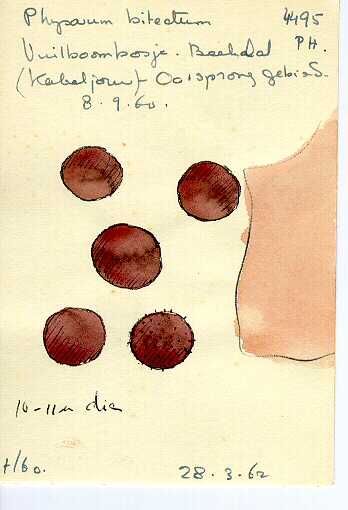 Physarum bitectum 4495
Vuilboombosje. Beekdal PH.
(Kabeljouw) Oorsprong gebied.
8.9.60.
10-11µ dia
t/60.
28.3.62